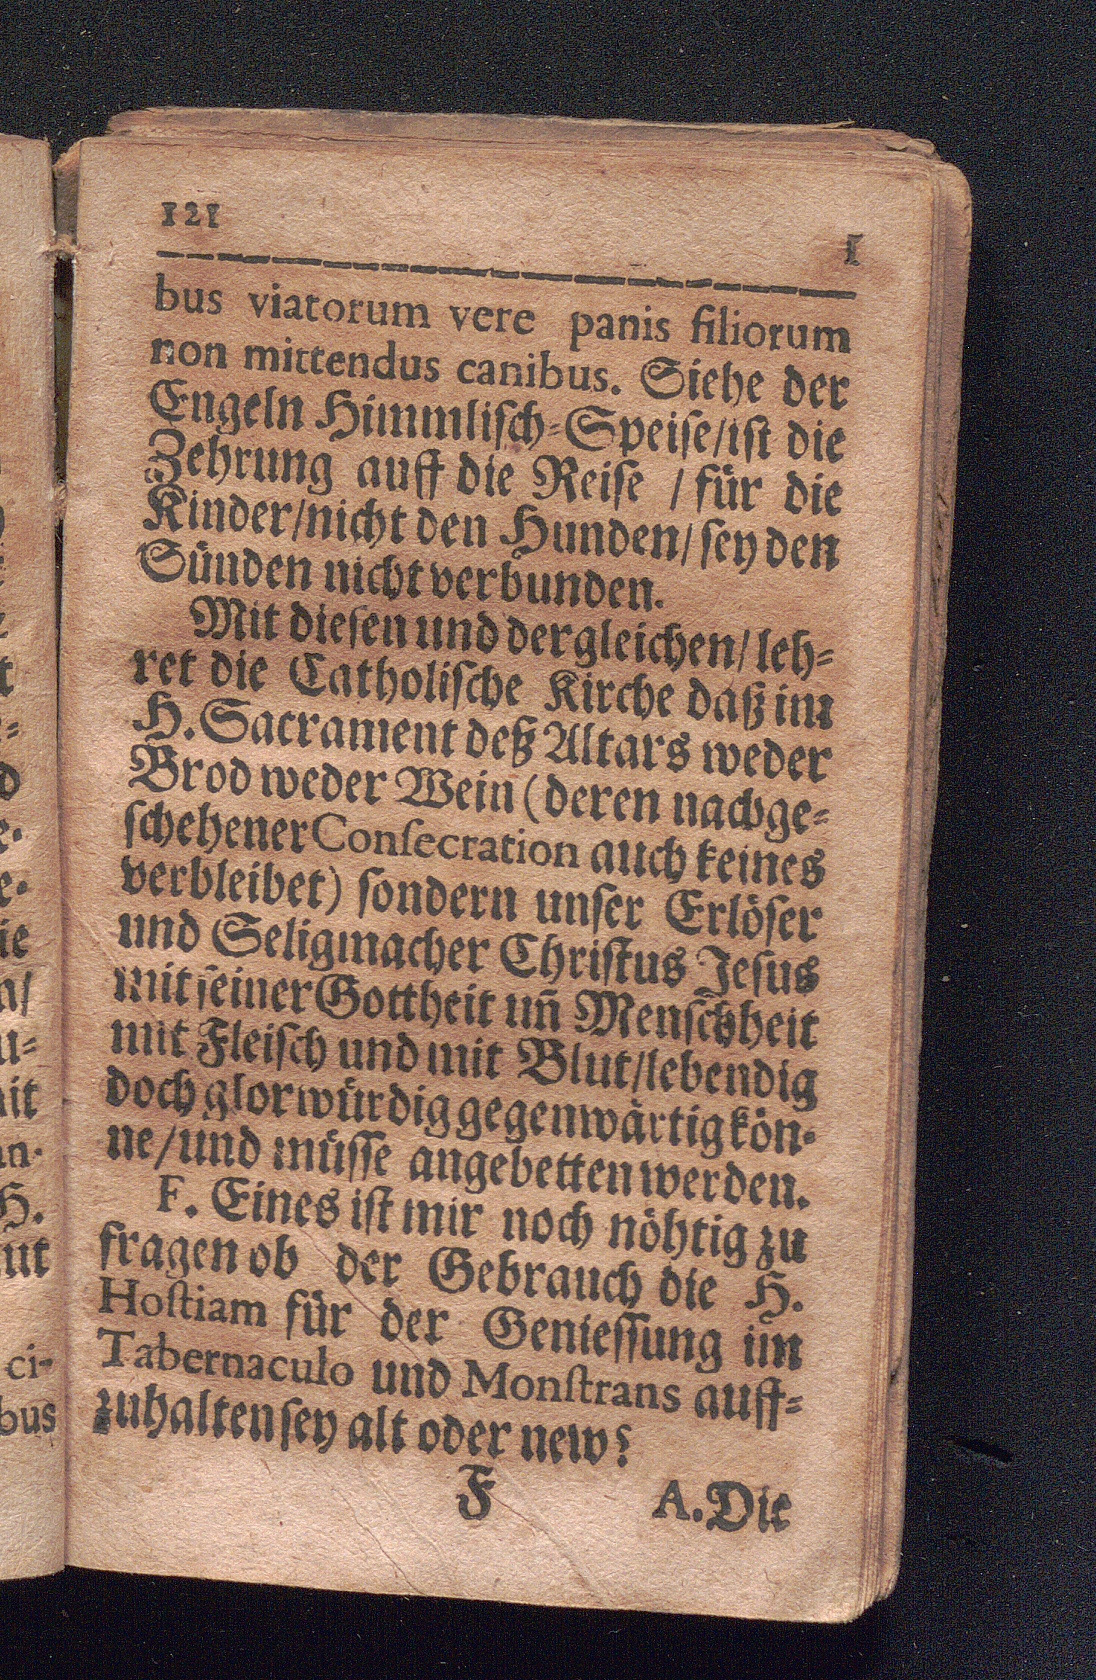 121
1
bus viatorum vere panis filiorum
non mittendus canibus. Siehe der
Engeln Himmliſch-Speiſe/iſt die
Zehrung auff die Reiſe / für die
Kinder/nicht den Hunden/ ſey den
Sünden nicht verbunden.
Mit dieſen und dergleichen/ leh-
ret die Catholiſche Kirche daß im
H. Sacrament deß Altars weder
Brod weder Wein (deren nachge-
ſchehener Conſecration auch keines
verbleibet) ſondern unſer Erlöſer
und Seligmacher Chriſtus Jeſus
mit ſeiner Gottheit un̄ Menſchheit
mit Fleiſch und mit Blut/lebendig
doch glorwürdig gegenwärtig kön-
ne/und müſſe angebetten werden.
F. Eines iſt mir noch nöhtig zu
fragen ob der Gebrauch die H.
Hoſtiam für der Genieſſung im
Tabernaculo und Monſtrans auff-
zuhalten ſey alt oder new?
F A. Die